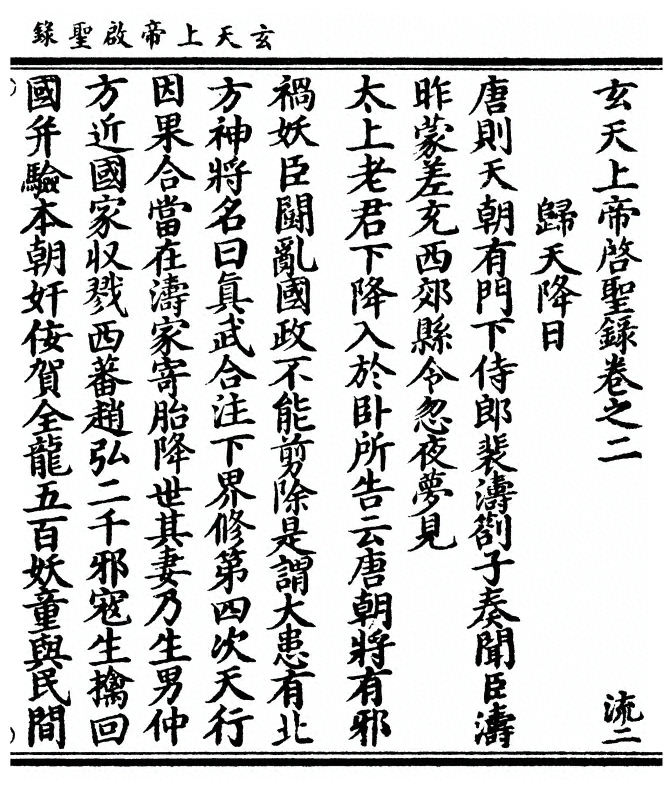 玄天上帝啟聖錄
玄天上帝啓聖錄卷之二
流二
歸天降日
唐則天朝有門下侍郎裴濤劄子奏聞臣濤
昨蒙差充西郊縣令忽夜夢見
太上老君下降入於卧所告云唐朝將有邪
禍妖臣鬪亂國政不能剪除是謂大患有北
方神將名曰眞武合注下界修第四次天行
因果合當在濤家寄胎降世其妻乃生男仲
方近國家収戮西蕃趙弘二千邪寇生擒回
國并驗本朝奸佞賀全龍五百妖童與民間